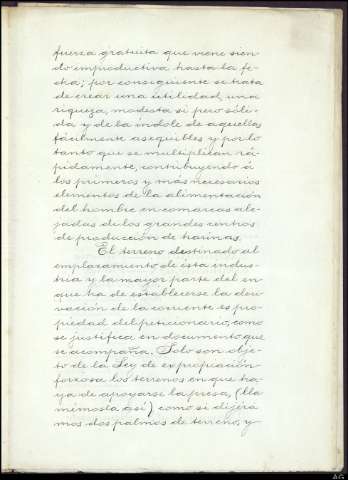 fuerza gratuita que viene sien-
do improductiva hasta la fe-
cha; por consiguiente se trata
de crear una utilidad, una
riqueza, modesta si pero sóli-
da y de la índole de aquellas
fácilmente asequibles y por lo
tanto que se multiplican rá-
pidamente, contribuyendo á
los primeros y más necesarios
elementos de la alimentación
del hombre en comarcas ale-
jadas de los grandes centros
de producción de harinas.
El terreno destinado al
emplazamiento de ésta indus-
tria y la mayor parte del en
que ha de establecerse la deri-
vación de la corriente es pro-
piedad del peticionario, como
se justifica en documento que
se acompaña. Solo son obje-
to de la Ley de expropiación
forzosa los terrenos en que ha-
ya de apoyarse la presa, (lla
mémosla así) como si dijéra
mos dos palmos de terreno, y